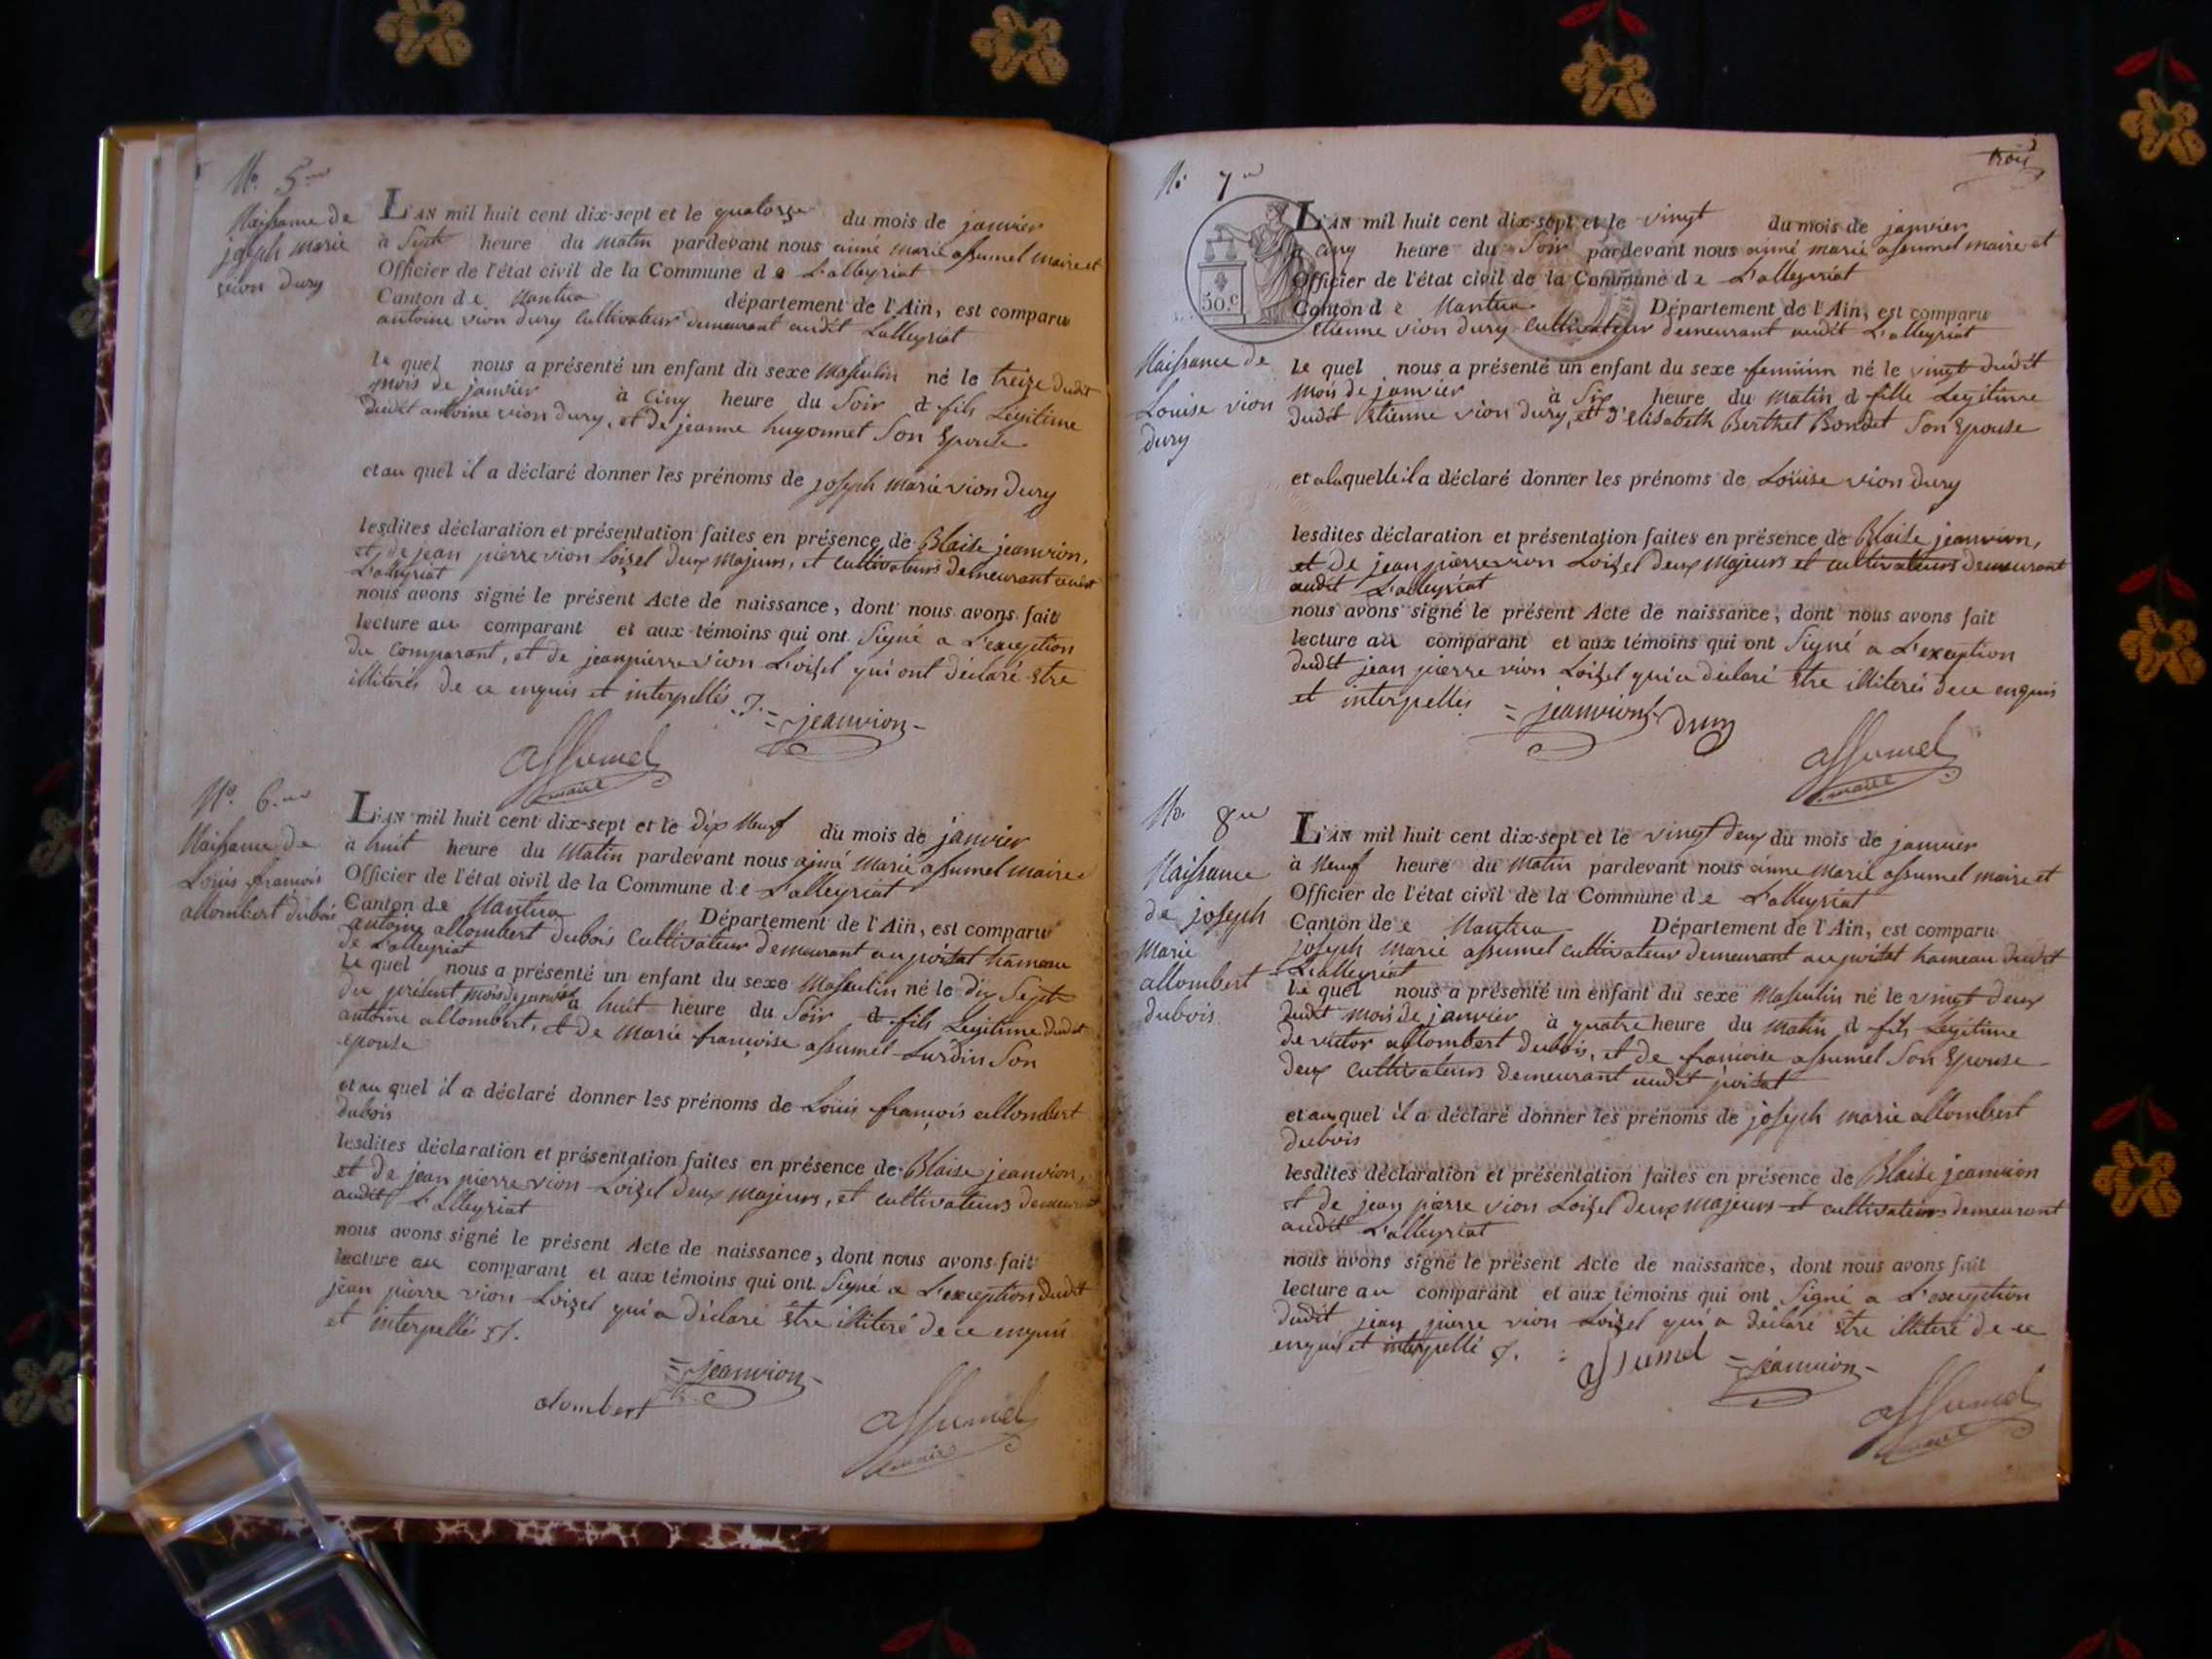 No. 5me
Naissance de
joseph marie
vion dury
L'AN mil huit cent dix-sept et le quatorze du mois de janvier
à Sept heure du matin pardevant nous aimé marie assumel maire et
Officier de l'état civil de la Commune de L'alleyriat
Canton de Nantua département de l'Ain, est comparu
antoine vion dury Cultivateur demeurant audit Lalleyriat
le quel nous a présenté un enfant du sexe Masculin né le treize dudit
mois de janvier à Cinq heure du Soir d fils Légitime
dudit antoine vion dury, et de jeanne hugonnet Son Epouse
et au quel il a déclaré donner les prénoms de joseph marie vion dury
lesdites déclaration et présentation faites en présence de Blaise jeanvion,
et de jean pierre vion Loizel deux Majeurs, et cultivateurs demeurant audit
L'alleyriat
nous avons signé le présent Acte de naissance, dont nous avons fait
lecture au comparant et aux témoins qui ont Signé a L'exception
du comparant, et de jeanpierre vion Loizel qui ont déclaré Etre
illiterés de ce enquis et interpellés
jeanvion
assumel
maire
No. 6me
Naissance de
Louis françois
allombert dubois
L'AN mil huit cent dix-sept et le dix Neuf du mois de janvier
à huit heure du Matin pardevant nous aimé Marie assumel maire
Officier de l'état civil de la Commune de L'alleyriat
Canton de Nantua Département de l'Ain, est comparu
antoine allombert dubois Cultivateur demeurant au poizat hameau
de L'alleyriat
Le quel nous a présenté un enfant du sexe Masculin né le dix Sept
du présent mois de janvier à huit heure du Soir d fils Legitime dudit
antoine allombert, et de Marie françoise assumel Surdin Son
epouse
et au quel il a déclaré donner les prénoms de Louis françois allombert
dubois
lesdites déclaration et présentation faites en présence de Blaise jeanvion,
et de jean pierre vion Loizel deux majeurs, et cultivateurs demeurant
audit L'alleyriat
nous avons signé le présent Acte de naissance, dont nous avons fait
lecture au comparant et aux témoins qui ont Signé a L'exception dudit
jean pierre vion Loizel qui a déclaré Etre illiteré de ce enquis
et interpellé
jeanvion
alombert
assumel
maire
trois
No 7me
50.c
Naissance de
Louise vion
dury
L'AN mil huit cent dix-sept et le vingt du mois de janvier
à cinq heure du Soir pardevant nous aimé marie assumel maire et
Officier de l'état civil de la Commune de L'alleyriat
Canton de Nantua Département de l'Ain, est comparu
Etienne vion dury Cultivateur demeurant audit L'alleyriat
Le quel nous a présenté un enfant du sexe feminin né le vingt dudit
mois de janvier à Six heure du Matin d fille Legitime
dudit Etienne vion dury, et d'Elisabeth Berthet Bondet Son Epouse
et a laquelle il a déclaré donner les prénoms de Louise vion dury
lesdites déclaration et présentation faites en présence de Blaise jeanvion,
et de jean pierre vion Loizel deux Majeurs et cultivateurs demeurant
audit L'alleyriat
nous avons signé le présent Acte de naissance, dont nous avons fait
lecture au comparant et aux témoins qui ont Signé a L'exception
dudit jean pierre vion Loizel qui a déclaré Etre illiterés de ce enquis
et interpellés
jeanvion dury
assumel
maire
No. 8me
Naissance
de joseph
Marie
allombert
dubois
L'AN mil huit cent dix-sept et le vingt deux du mois de janvier
à Neuf heure du Matin pardevant nous aimé Marie assumel maire et
Officier de l'état civil de la Commune de L'alleyriat
Canton de Nantua Département de l'Ain, est comparu
joseph marie assumel cultivateur demeurant au poizat hameau dudit
L'alleyriat
Le quel nous a présenté un enfant du sexe Masculin né le vingt deux
dudit mois de janvier à quatre heure du Matin d fils Legitime
de victor allombert dubois, et de françoise assumel Son Epouse
deux cultivateurs demeurant audit poizat
et au quel il a déclaré donner les prénoms de joseph marie allombert
dubois
lesdites déclaration et présentation faites en présence de Blaise jeanvion
et de jean pierre vion Loizel deux majeurs et cultivateurs demeurant
audit L'alleyriat
nous avons signé le présent Acte de naissance, dont nous avons fait
lecture au comparant et aux témoins qui ont Signé a L'exception
dudit jean pierre vion Loizel qui a déclaré Etre illiteré de ce
enquis et interpellé
assumel jeanvion
assumel
maire